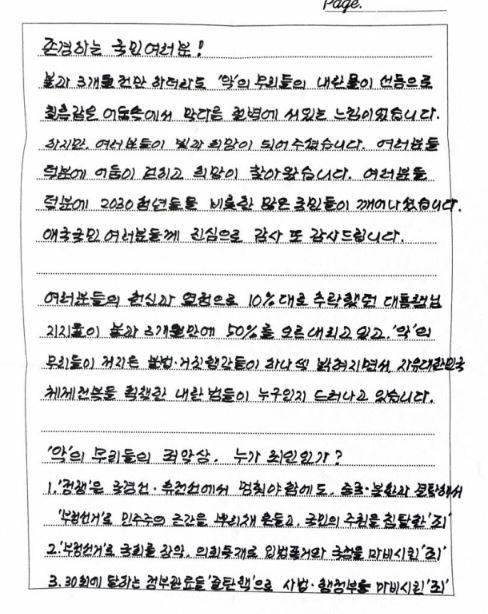 Page.
존경하는 국민여러분!
불과 3개월 전만 하더라도 '악'의 무리들의 내란몰이 선동으로
칠흑같은 어둠속에서 막다른 절벽에 서있는 느낌이었습니다.
하지만, 여러분들이 빛과 희망이 되어 주셨습니다. 여러분들
덕분에 어둠이 걷히고 희망이 찾아왔습니다. 여러분들
덕분에 2030 청년들을 비롯한 많은 국민들이 깨어나셨습니다.
애국국민 여러분들께 진심으로 감사 또 감사드립니다.
여러분들의 헌신과 열정으로 10%대로 추락했던 대통령님
지지율이 불과 3개월만에 50%를 오르내리고 있고, '악'의
무리들이 저지른 불법·거짓행각들이 하나씩 밝혀지면서, 자유대한민국
체제전복을 획책한 내란 범들이 누구인지 드러나고 있습니다.
'악'의 무리들의 죄악상, 누가 죄인인가?
1. '정쟁'은 국경선·휴전선에서 멈춰야 함에도, 중국·북한과 결탁해서
'부정선거'로 민주주의 근간을 뿌리채 흔들고, 국민의 주권을 침탈한 '죄'
2. '부정선거'로 국회를 장악, 의회독재로 입법폭거와 국정을 마비시킨 '죄'
3. 30회에 달하는 정부관료들 '줄탄핵'으로 사법·행정부를 마비시킨 '죄'